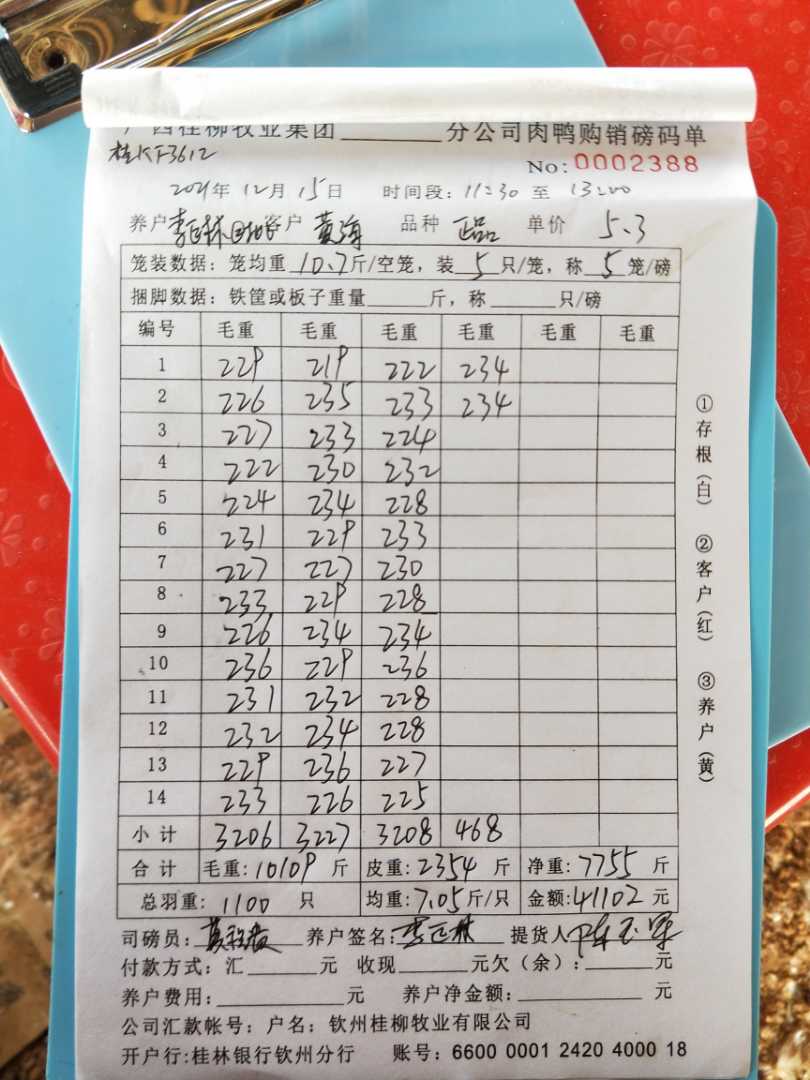 广西桂柳牧业集团______分公司肉鸭购销磅码单
桂KF3612
No:0002388
2021年12月15日 时间段:11:30 至 13:00
养户 客户 黄海 品种 正品 单价 5.3
笼装数据:笼均重 10.7 斤/空笼,装 5 只/笼,称 5 笼/磅
捆脚数据:铁筐或板子重量______斤,称______只/磅
编号 毛重 毛重 毛重 毛重 毛重 毛重
1 229 219 222 234
2 226 235 233 234
3 227 233 224
4 222 230 232
5 224 234 228
6 231 229 233
7 227 227 230
8 233 229 228
9 226 234 234
10 236 229 236
11 231 232 228
12 232 234 228
13 229 236 227
14 233 226 225
小计 3206 3227 3208 468
合计 毛重:10109斤 皮重:2354斤 净重:7755斤
总羽重:1100 只 均重:7.05斤/只 金额:41102元
司磅员: 养户签名:李正林 提货人
付款方式:汇______元 收现______元欠(余):______元
养户费用:______元 养户净金额:______元
公司汇款帐号:户名:钦州桂柳牧业有限公司
开户行:桂林银行钦州分行 账号:6600 0001 2420 4000 18
①存根(白) ②客户(红) ③养户(黄)